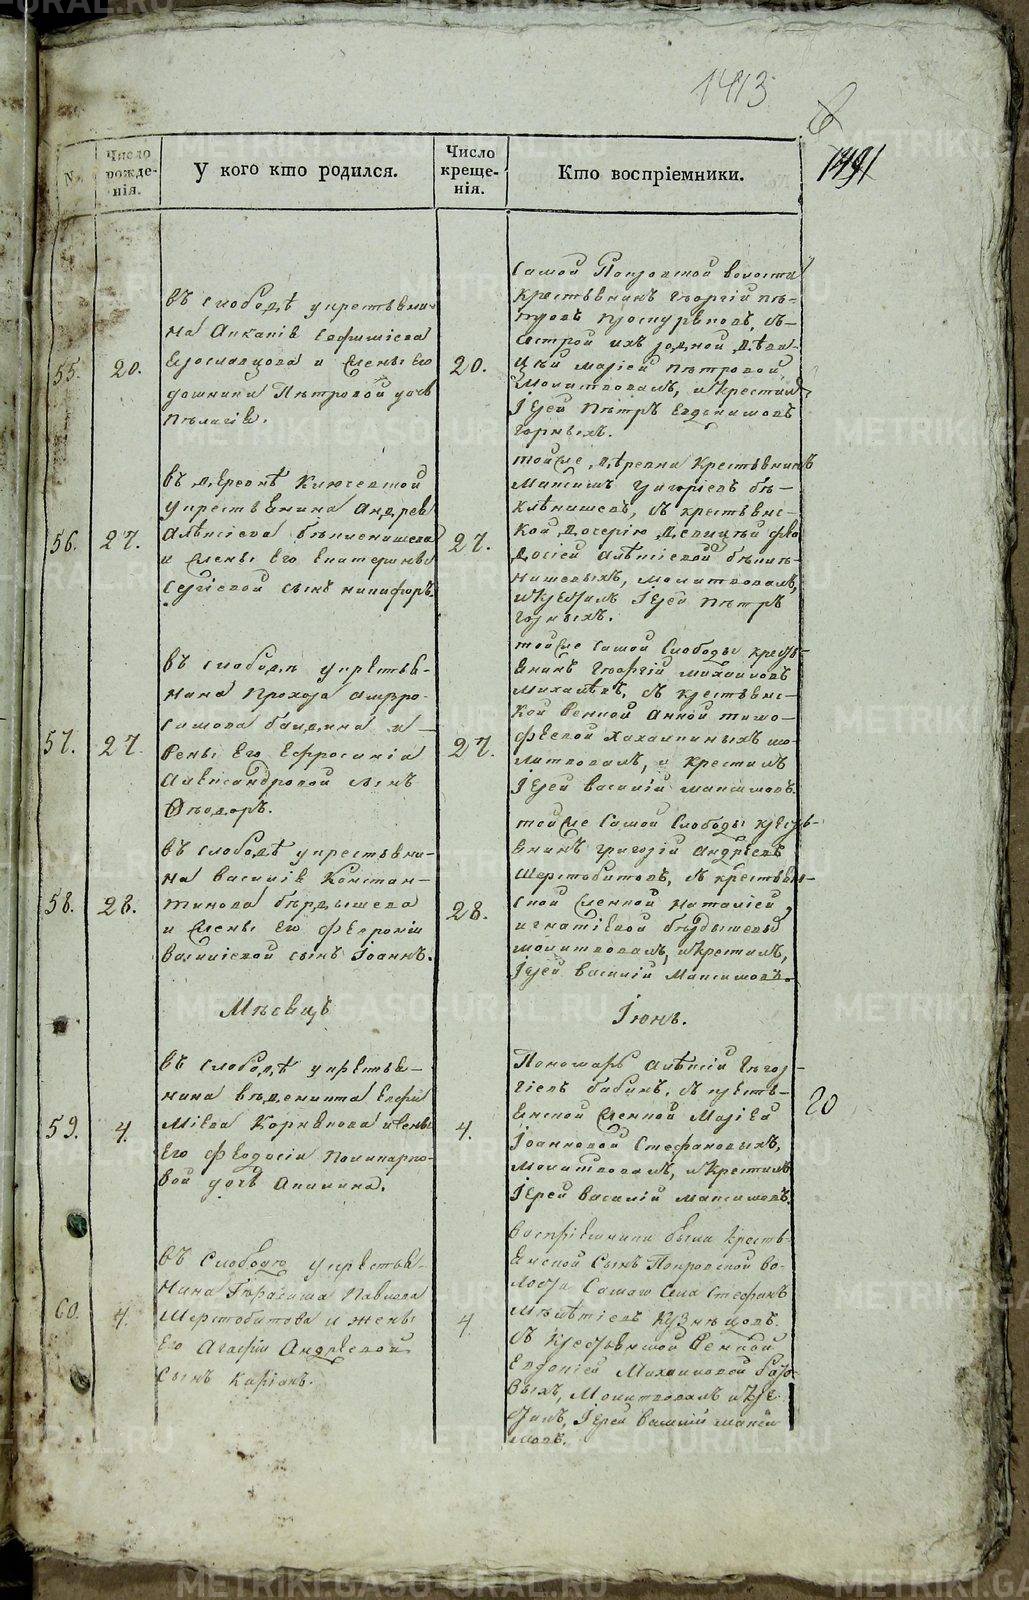 1413
1491
N.
Число рожде-нія.
У кого кто родился.
Число креще-нія.
Кто воспріемники.
55.
20.
въ слободѣ укрестьяни-
на
Ефимиева
и жены его
Петровой дочь
Пелагія.
20.
самой Покровской волости
крестьянинъ Георгій пе-
тровъ Проскуряковъ, съ
сестрой ихъ родной дѣви-
цѣй маріей петровой
молитвовалъ, икрестилъ
Іерей Петръ
горныхъ.
56.
27.
въ деревнѣ Ключевской
укрестьянина Андрея
Алѣксіева
и жены Его Екатерины
Сергіевой сынъ никифоръ.
27.
тойже деревни крестьянинъ
Максимъ Григоріевъ бѣ-
съ крестьянс-
кой дочерію девицей фео
досіей алѣксіевой
молитвовалъ,
икрестилъ Іерей Петръ
горныхъ.
57.
27
въ слободѣ укрестья-
нина Прохора амвро-
симова и
жены Его Ефросиніи
Александровой сынъ
Феодоръ.
27.
тойже самой Слободы кресть-
янинъ Георгій михаиловъ
съ крестьянс-
кой женкой анной тимо-
феевой мо-
литвовалъ, и крестилъ
Іерей василій максимовъ.
58.
28.
въ слободѣ укрестьяни-
на василія Констан-
тинова бердышева
и жены его февроніи
василіевой сынъ Іоаннъ.
28.
тойже самой Слободы кресть-
янинъ григорій андреевъ
Шерстобитовъ, съ крестьян-
ской женкой наталіей
игнатіевой бердышевы
молитвовалъ, икрестилъ,
Іерей василій Максимовъ.
Мѣсяцъ
Іюнь.
59.
4.
въ слободѣ укрестья-
нина венедикта Евфи
міева Корнякова ижены
его Феодосіи Поликарпо-
вой дочь Акилина.
4.
Пономарь алѣксій Геор-
гіевъ бабинъ, съ кресть-
янской женкой Маріей
Іоанновой Стефановыхъ,
молитвовалъ, икрестилъ
Іерей василій максимовъ.
20
60.
4.
въ Слободѣ укрестья-
нина Герасима Павлова
Шерстобитова и жены
его Агафіи Андреевой
Сынъ Киріакъ.
4
воспріемники были кресть-
янской сынъ Покровской во-
лости самаго села Стефанъ
Кузнецовъ.
съ крестьянской женкой
Евдокіей Михаиловой
молитвовалъ икре-
стилъ, Іерей василій макси
мовъ.